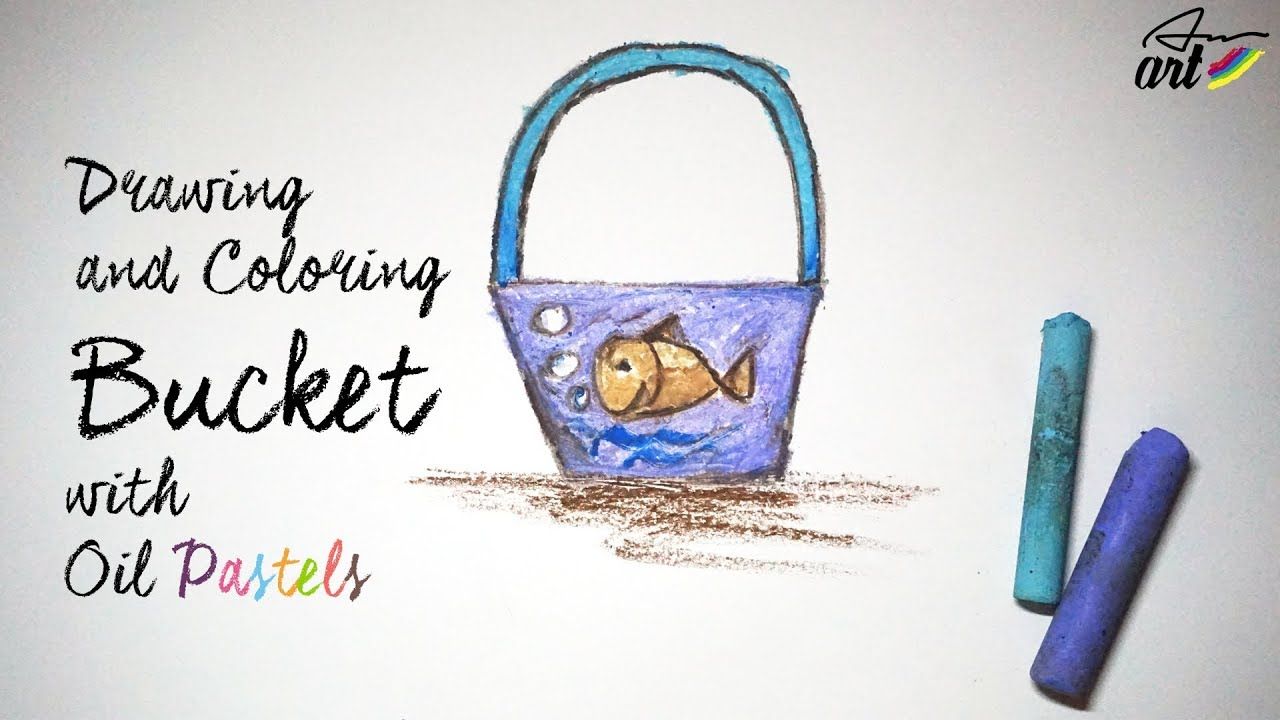 Drawing
and Coloring
Bucket
with
Oil Pastels
art